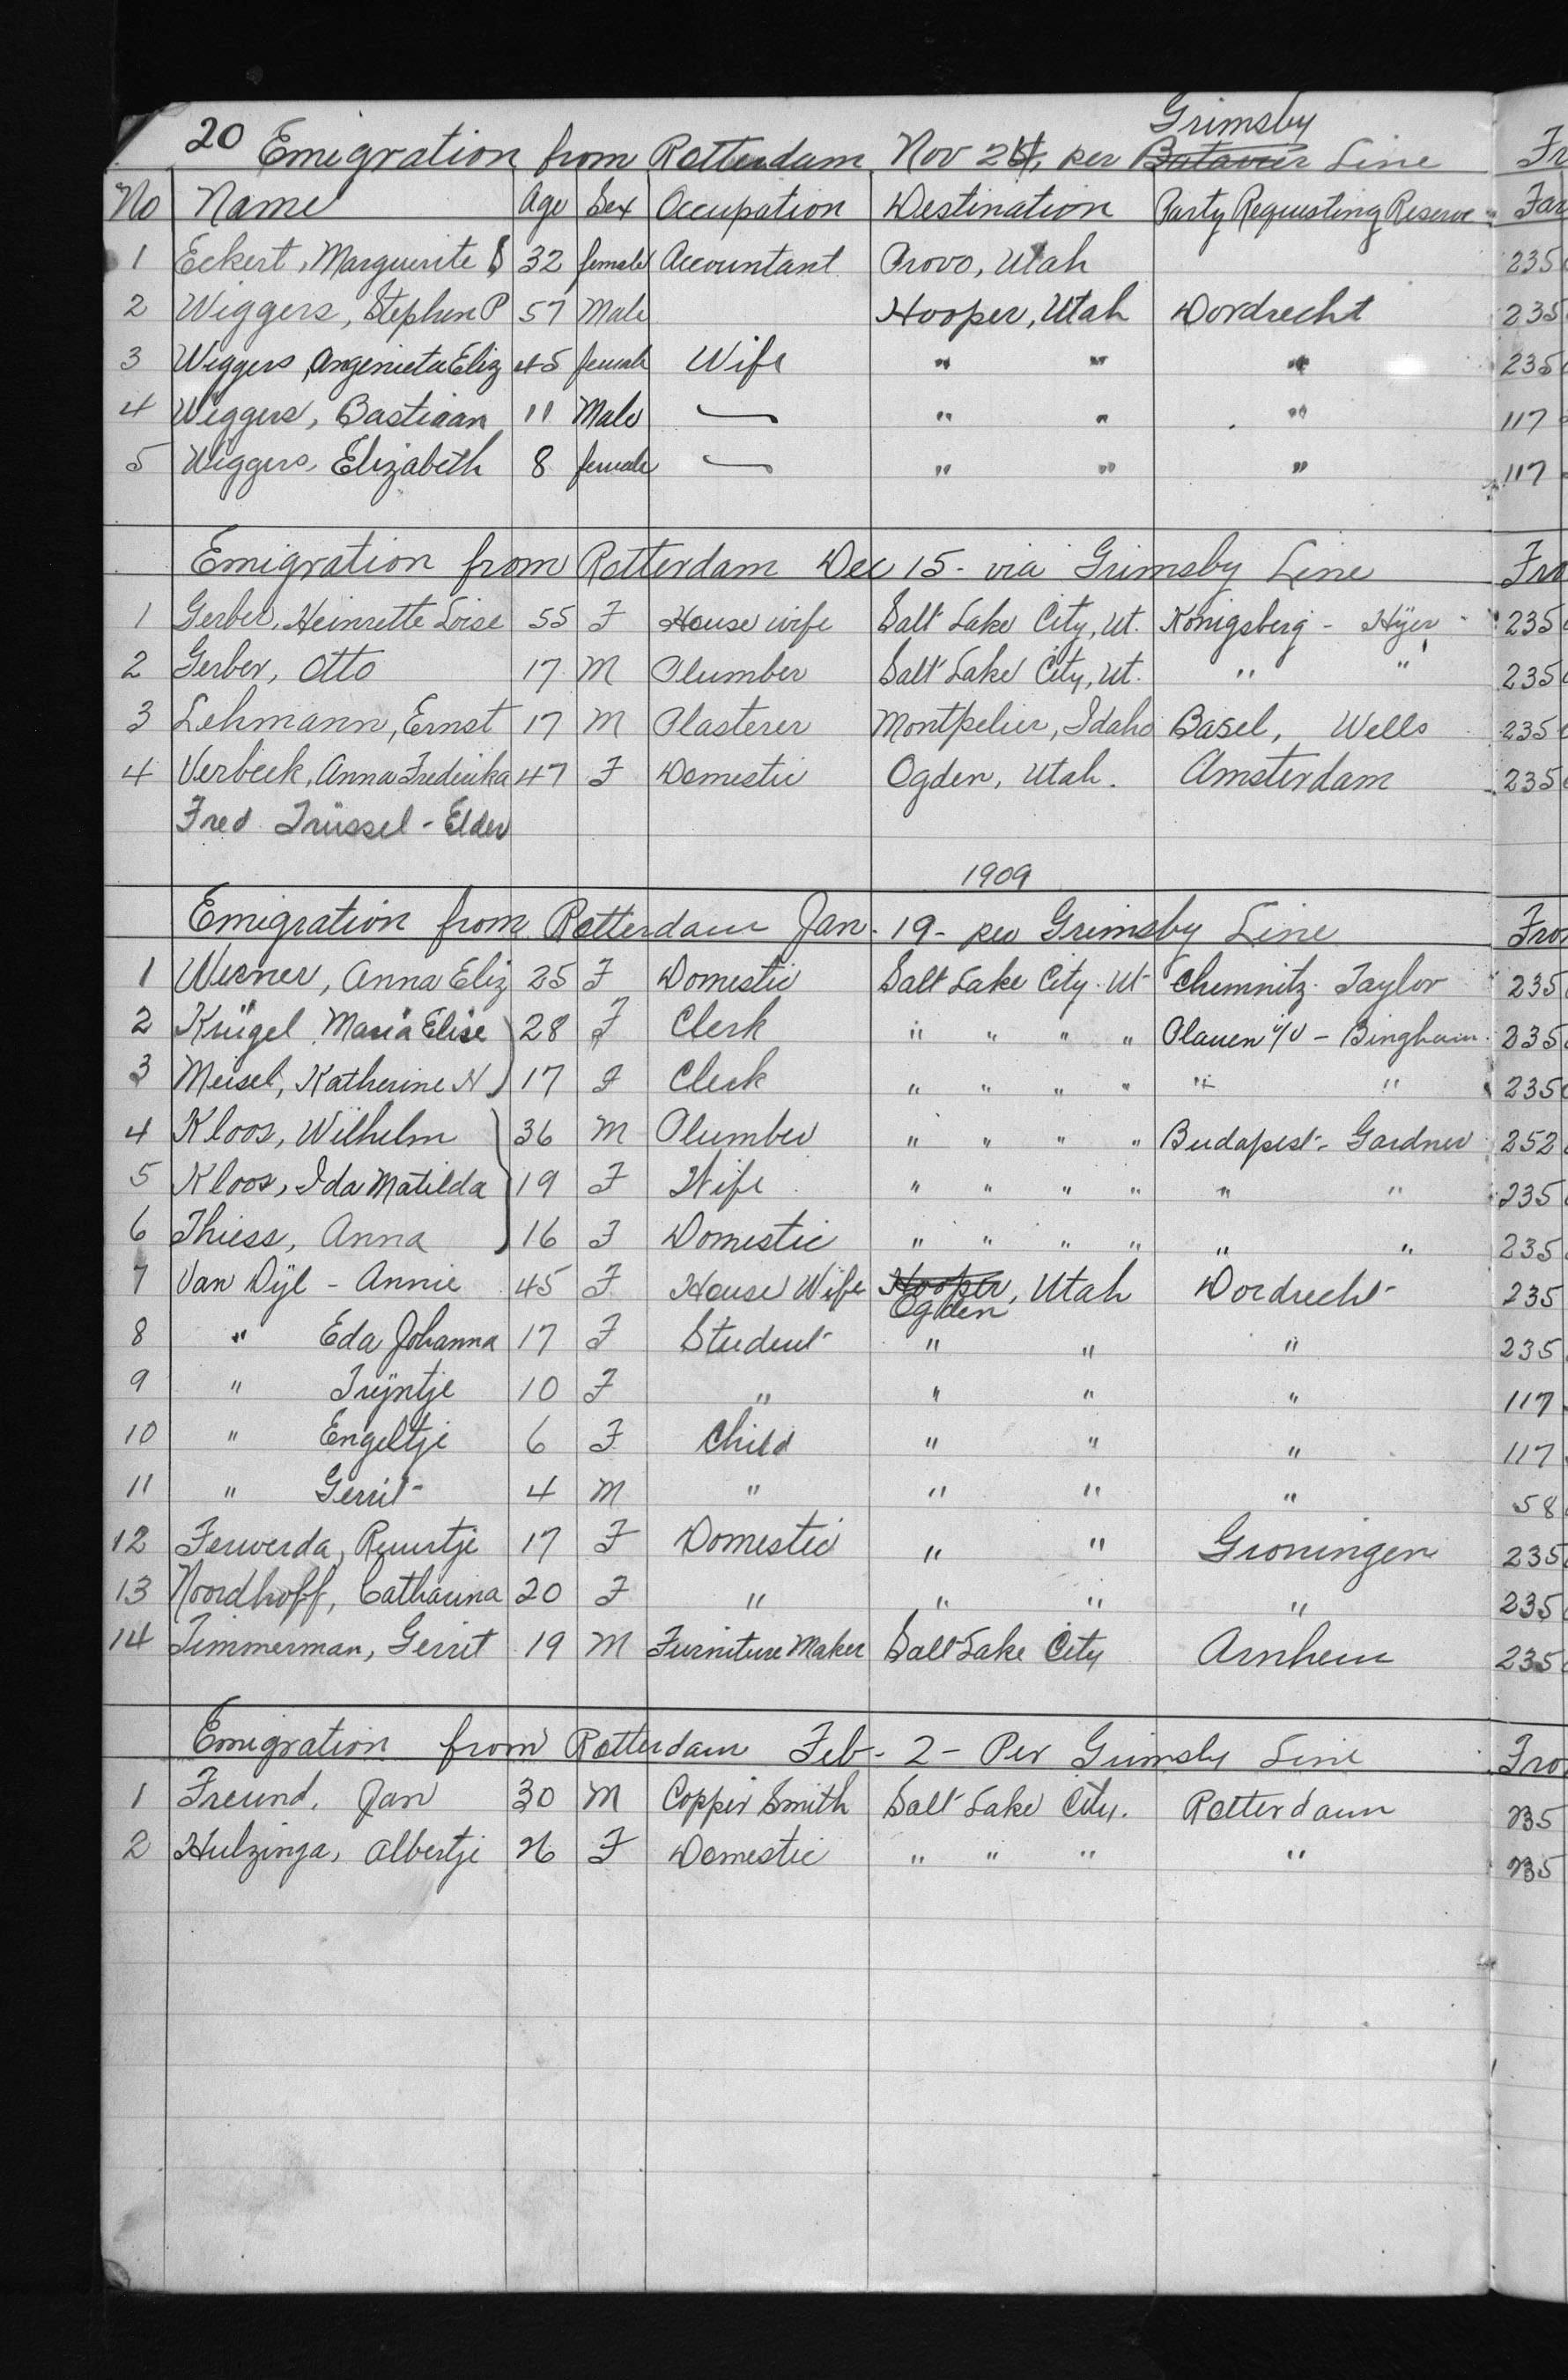 20 Emigration from Rotterdam Nov 24, per ~~Batavier~~ Grimsby Line Fr
No Name Age Sex Occupation Destination Party Requesting Reserve Far
1 Eckert, Marguerite S 32 female Accountant Provo, Utah 235
2 Wiggers, Stephen P 57 Male Hooper, Utah Dordrecht 235
3 Wiggers, Angenieta Eliz 45 female Wife " " " 235
4 Wiggers, Bastiaan 11 Male — " " " 117
5 Wiggers, Elizabeth 8 female — " " " 117
Emigration from Rotterdam Dec 15 - via Grimsby Line Fro
1 Gerber, Heinrette Loise 55 F House wife Salt Lake City, Ut. Königsberg - Hÿer 235
2 Gerber, Otto 17 M Plumber Salt Lake City, Ut. " " 235
3 Lehmann, Ernst 17 M Plasterer Montpelier, Idaho Basel, Wells 235
4 Verbeek, Anna Frederika 47 F Domestic Ogden, Utah. Amsterdam 235
Fred Trüssel - Elder
1909
Emigration from Rotterdam Jan. 19 - per Grimsby Line Fro
1 Werner, Anna Eliz 25 F Domestic Salt Lake City Ut Chemnitz - Taylor 235
2 Krügel Maria Elise 28 F Clerk " " " " Plauen i/V - Bingham 235
3 Meisel, Katherine N 17 F Clerk " " " " " " 235
4 Kloos, Wilhelm 36 M Plumber " " " " Budapest - Gardner 252
5 Kloos, Ida Matilda 19 F Wife " " " " " " 235
6 Thiess, Anna 16 F Domestic " " " " " " 235
7 Van Dÿl - Annie 45 F House Wife ~~Hooper~~, Utah Dordrecht 235
Ogden
8 " Eda Johanna 17 F Student " " " 235
9 " Trÿntje 10 F " " " " 117
10 " Engeltje 6 F Child " " " 117
11 " Gerrit 4 M " " " " 58
12 Ferwerda, Ruurtje 17 F Domestic " " Groningen 235
13 Noordhoff, Catharina 20 F " " " " 235
14 Timmerman, Gerrit 19 M Furniture Maker Salt Lake City Arnhem 235
Emigration from Rotterdam Feb - 2 - Per Grimsby Line Fro
1 Freund, Jan 30 M Copper Smith Salt Lake City. Rotterdam 235
2 Hulzinga, Albertje 26 F Domestic " " " " 235